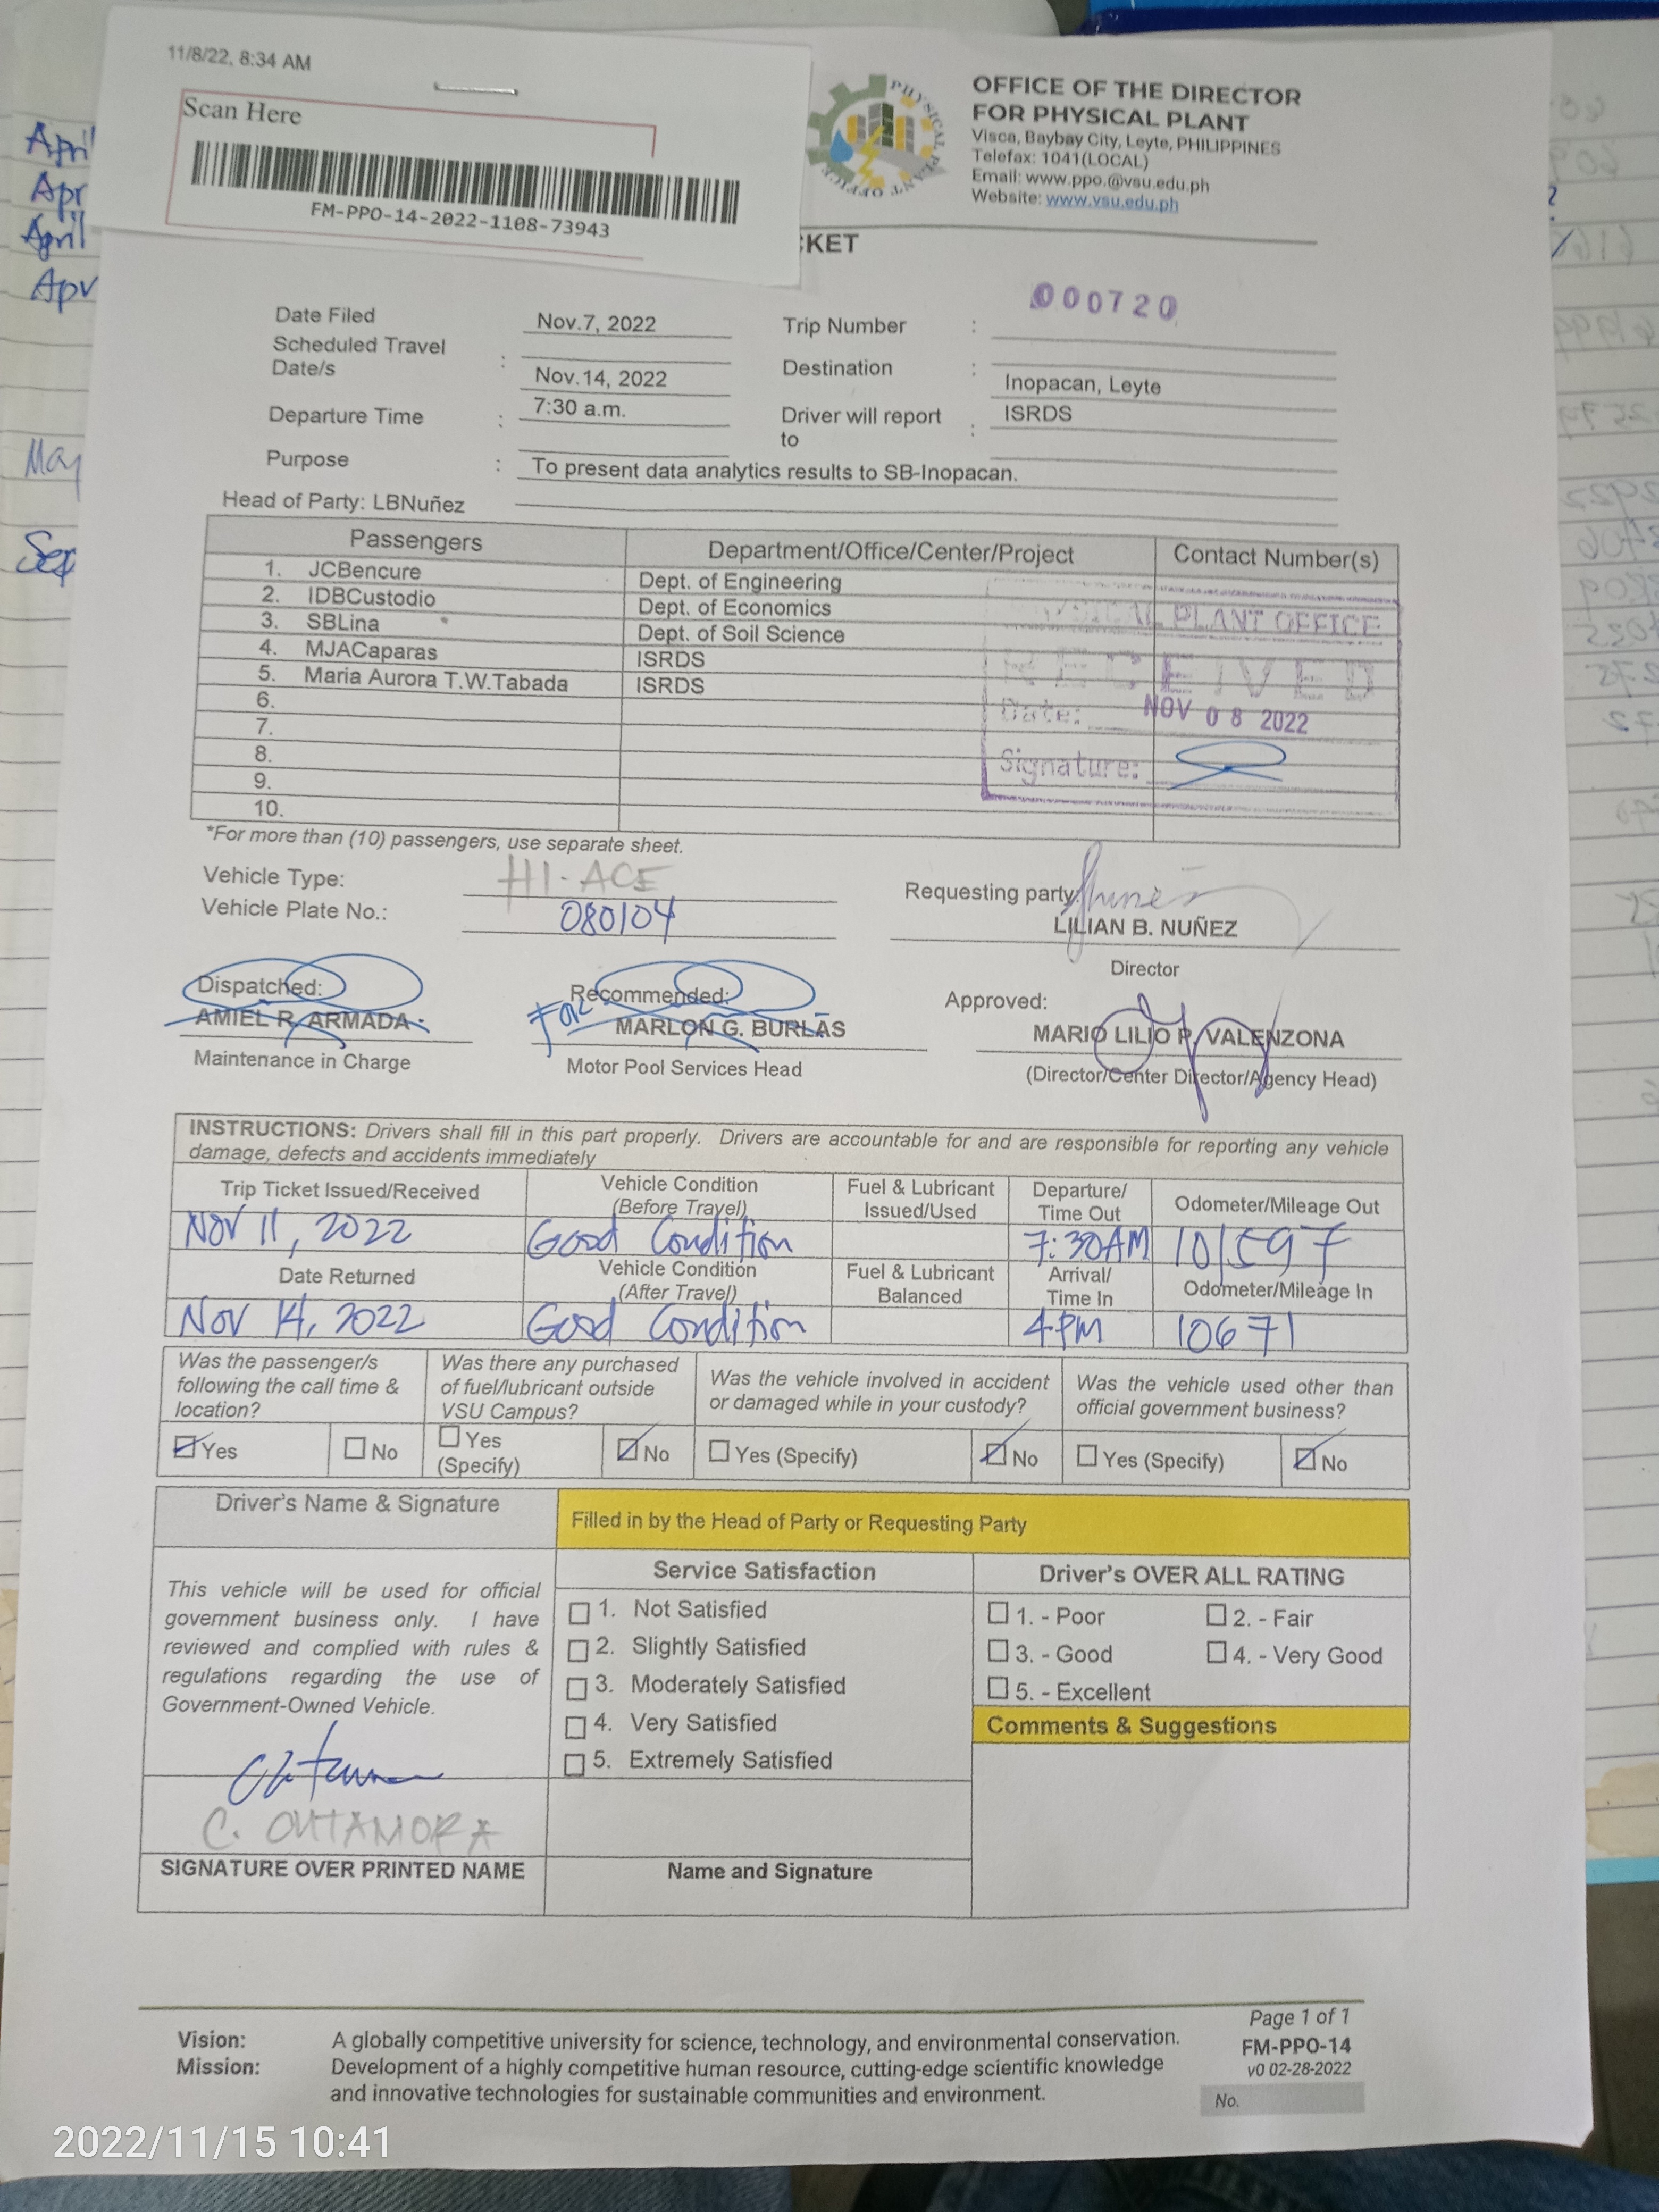 11/8/22, 8:34 AM
Scan Here
FM-PPO-14-2022-1108-73943
PHYSICAL PLANT OFFICE
OFFICE OF THE DIRECTOR
FOR PHYSICAL PLANT
Visca, Baybay City, Leyte, PHILIPPINES
Telefax: 1041(LOCAL)
Email: www.ppo.@vsu.edu.ph
Website: www.vsu.edu.ph
CKET
April
Apr
April
Apr
May
Sep
000720
Date Filed Nov.7, 2022 Trip Number :
Scheduled Travel Date/s : Nov.14, 2022 Destination : Inopacan, Leyte
Departure Time : 7:30 a.m. Driver will report to : ISRDS
Purpose : To present data analytics results to SB-Inopacan.
Head of Party: LBNuñez
Passengers Department/Office/Center/Project Contact Number(s)
1. JCBencure Dept. of Engineering
2. IDBCustodio Dept. of Economics
3. SBLina Dept. of Soil Science
4. MJACaparas ISRDS
5. Maria Aurora T.W.Tabada ISRDS
6.
7.
8.
9.
10.
PHYSICAL PLANT OFFICE
RECEIVED
Date: NOV 08 2022
Signature:
*For more than (10) passengers, use separate sheet.
Vehicle Type: HI-ACE
Vehicle Plate No.: 080104
Requesting party:
LILIAN B. NUÑEZ
Director
Dispatched:
AMIEL R. ARMADA
Maintenance in Charge
Recommended:
For MARLON G. BURLAS
Motor Pool Services Head
Approved:
MARIO LILIO P. VALENZONA
(Director/Center Director/Agency Head)
INSTRUCTIONS: Drivers shall fill in this part properly. Drivers are accountable for and are responsible for reporting any vehicle
damage, defects and accidents immediately
Trip Ticket Issued/Received Vehicle Condition (Before Travel) Fuel & Lubricant Issued/Used Departure/ Time Out Odometer/Mileage Out
Nov 11, 2022 Good Condition 7:30AM 101597
Date Returned Vehicle Condition (After Travel) Fuel & Lubricant Balanced Arrival/ Time In Odometer/Mileage In
Nov 14, 2022 Good Condition 4PM 10671
Was the passenger/s following the call time & location?
Was there any purchased of fuel/lubricant outside VSU Campus?
Was the vehicle involved in accident or damaged while in your custody?
Was the vehicle used other than official government business?
Yes No Yes (Specify) No Yes (Specify) No Yes (Specify) No
Driver's Name & Signature
Filled in by the Head of Party or Requesting Party
This vehicle will be used for official
government business only. I have
reviewed and complied with rules &
regulations regarding the use of
Government-Owned Vehicle.
C. OMTAMORA
SIGNATURE OVER PRINTED NAME
Service Satisfaction
1. Not Satisfied
2. Slightly Satisfied
3. Moderately Satisfied
4. Very Satisfied
5. Extremely Satisfied
Name and Signature
Driver's OVER ALL RATING
1. - Poor 2. - Fair
3. - Good 4. - Very Good
5. - Excellent
Comments & Suggestions
Page 1 of 1
FM-PPO-14
v0 02-28-2022
No.
Vision: A globally competitive university for science, technology, and environmental conservation.
Mission: Development of a highly competitive human resource, cutting-edge scientific knowledge
and innovative technologies for sustainable communities and environment.
2022/11/15 10:41